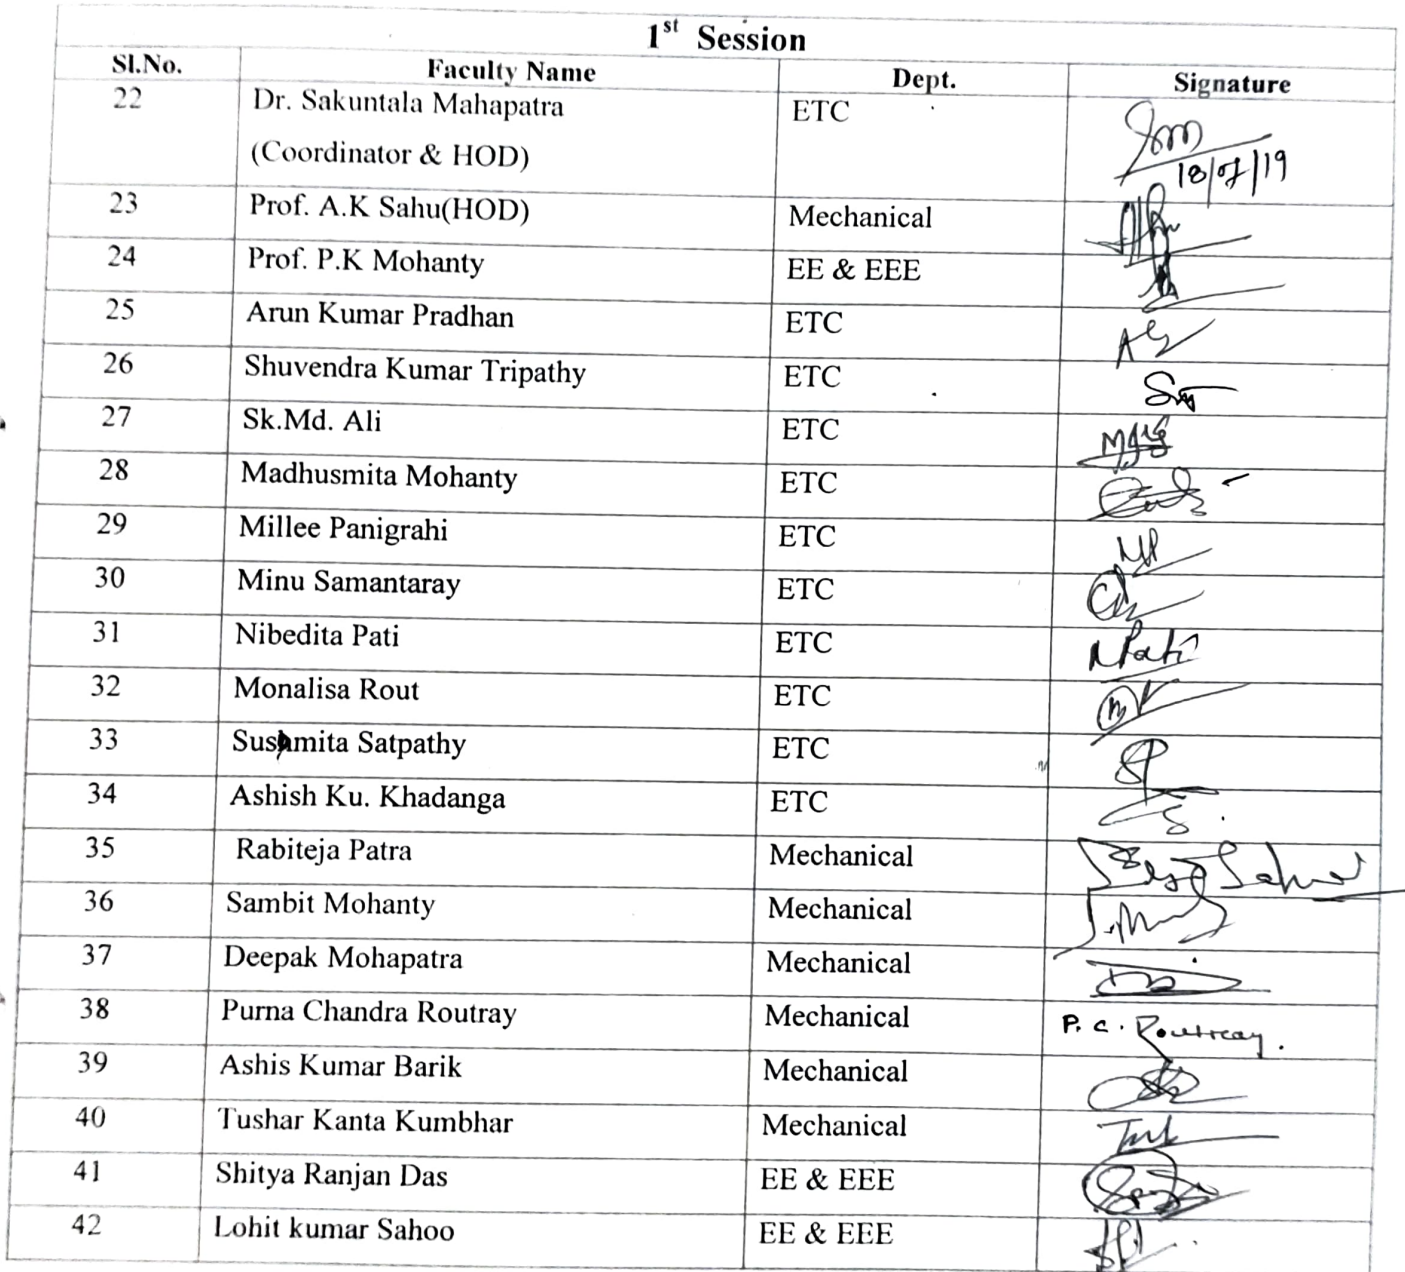 1st Session
Sl.No. Faculty Name Dept. Signature
22 Dr. Sakuntala Mahapatra ETC
(Coordinator & HOD)
18/07/19
23 Prof. A.K Sahu(HOD) Mechanical
24 Prof. P.K Mohanty EE & EEE
25 Arun Kumar Pradhan ETC
26 Shuvendra Kumar Tripathy ETC
27 Sk.Md. Ali ETC
28 Madhusmita Mohanty ETC
29 Millee Panigrahi ETC
30 Minu Samantaray ETC
31 Nibedita Pati ETC NPati
32 Monalisa Rout ETC
33 Sushmita Satpathy ETC
34 Ashish Ku. Khadanga ETC
35 Rabiteja Patra Mechanical
36 Sambit Mohanty Mechanical
37 Deepak Mohapatra Mechanical
38 Purna Chandra Routray Mechanical P. C. Routray.
39 Ashis Kumar Barik Mechanical
40 Tushar Kanta Kumbhar Mechanical
41 Shitya Ranjan Das EE & EEE
42 Lohit kumar Sahoo EE & EEE